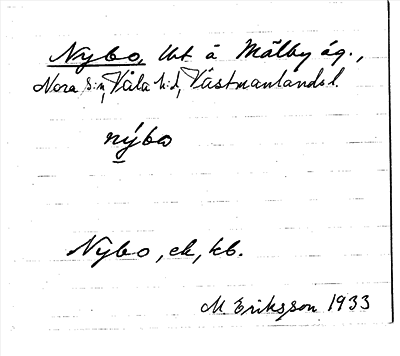 Nybo, lht å Målby äg.,
Nora s:n, Våla h:d, Västmanlands l.
nýbo
Nybo, ek, kb.
M Eriksson 1933